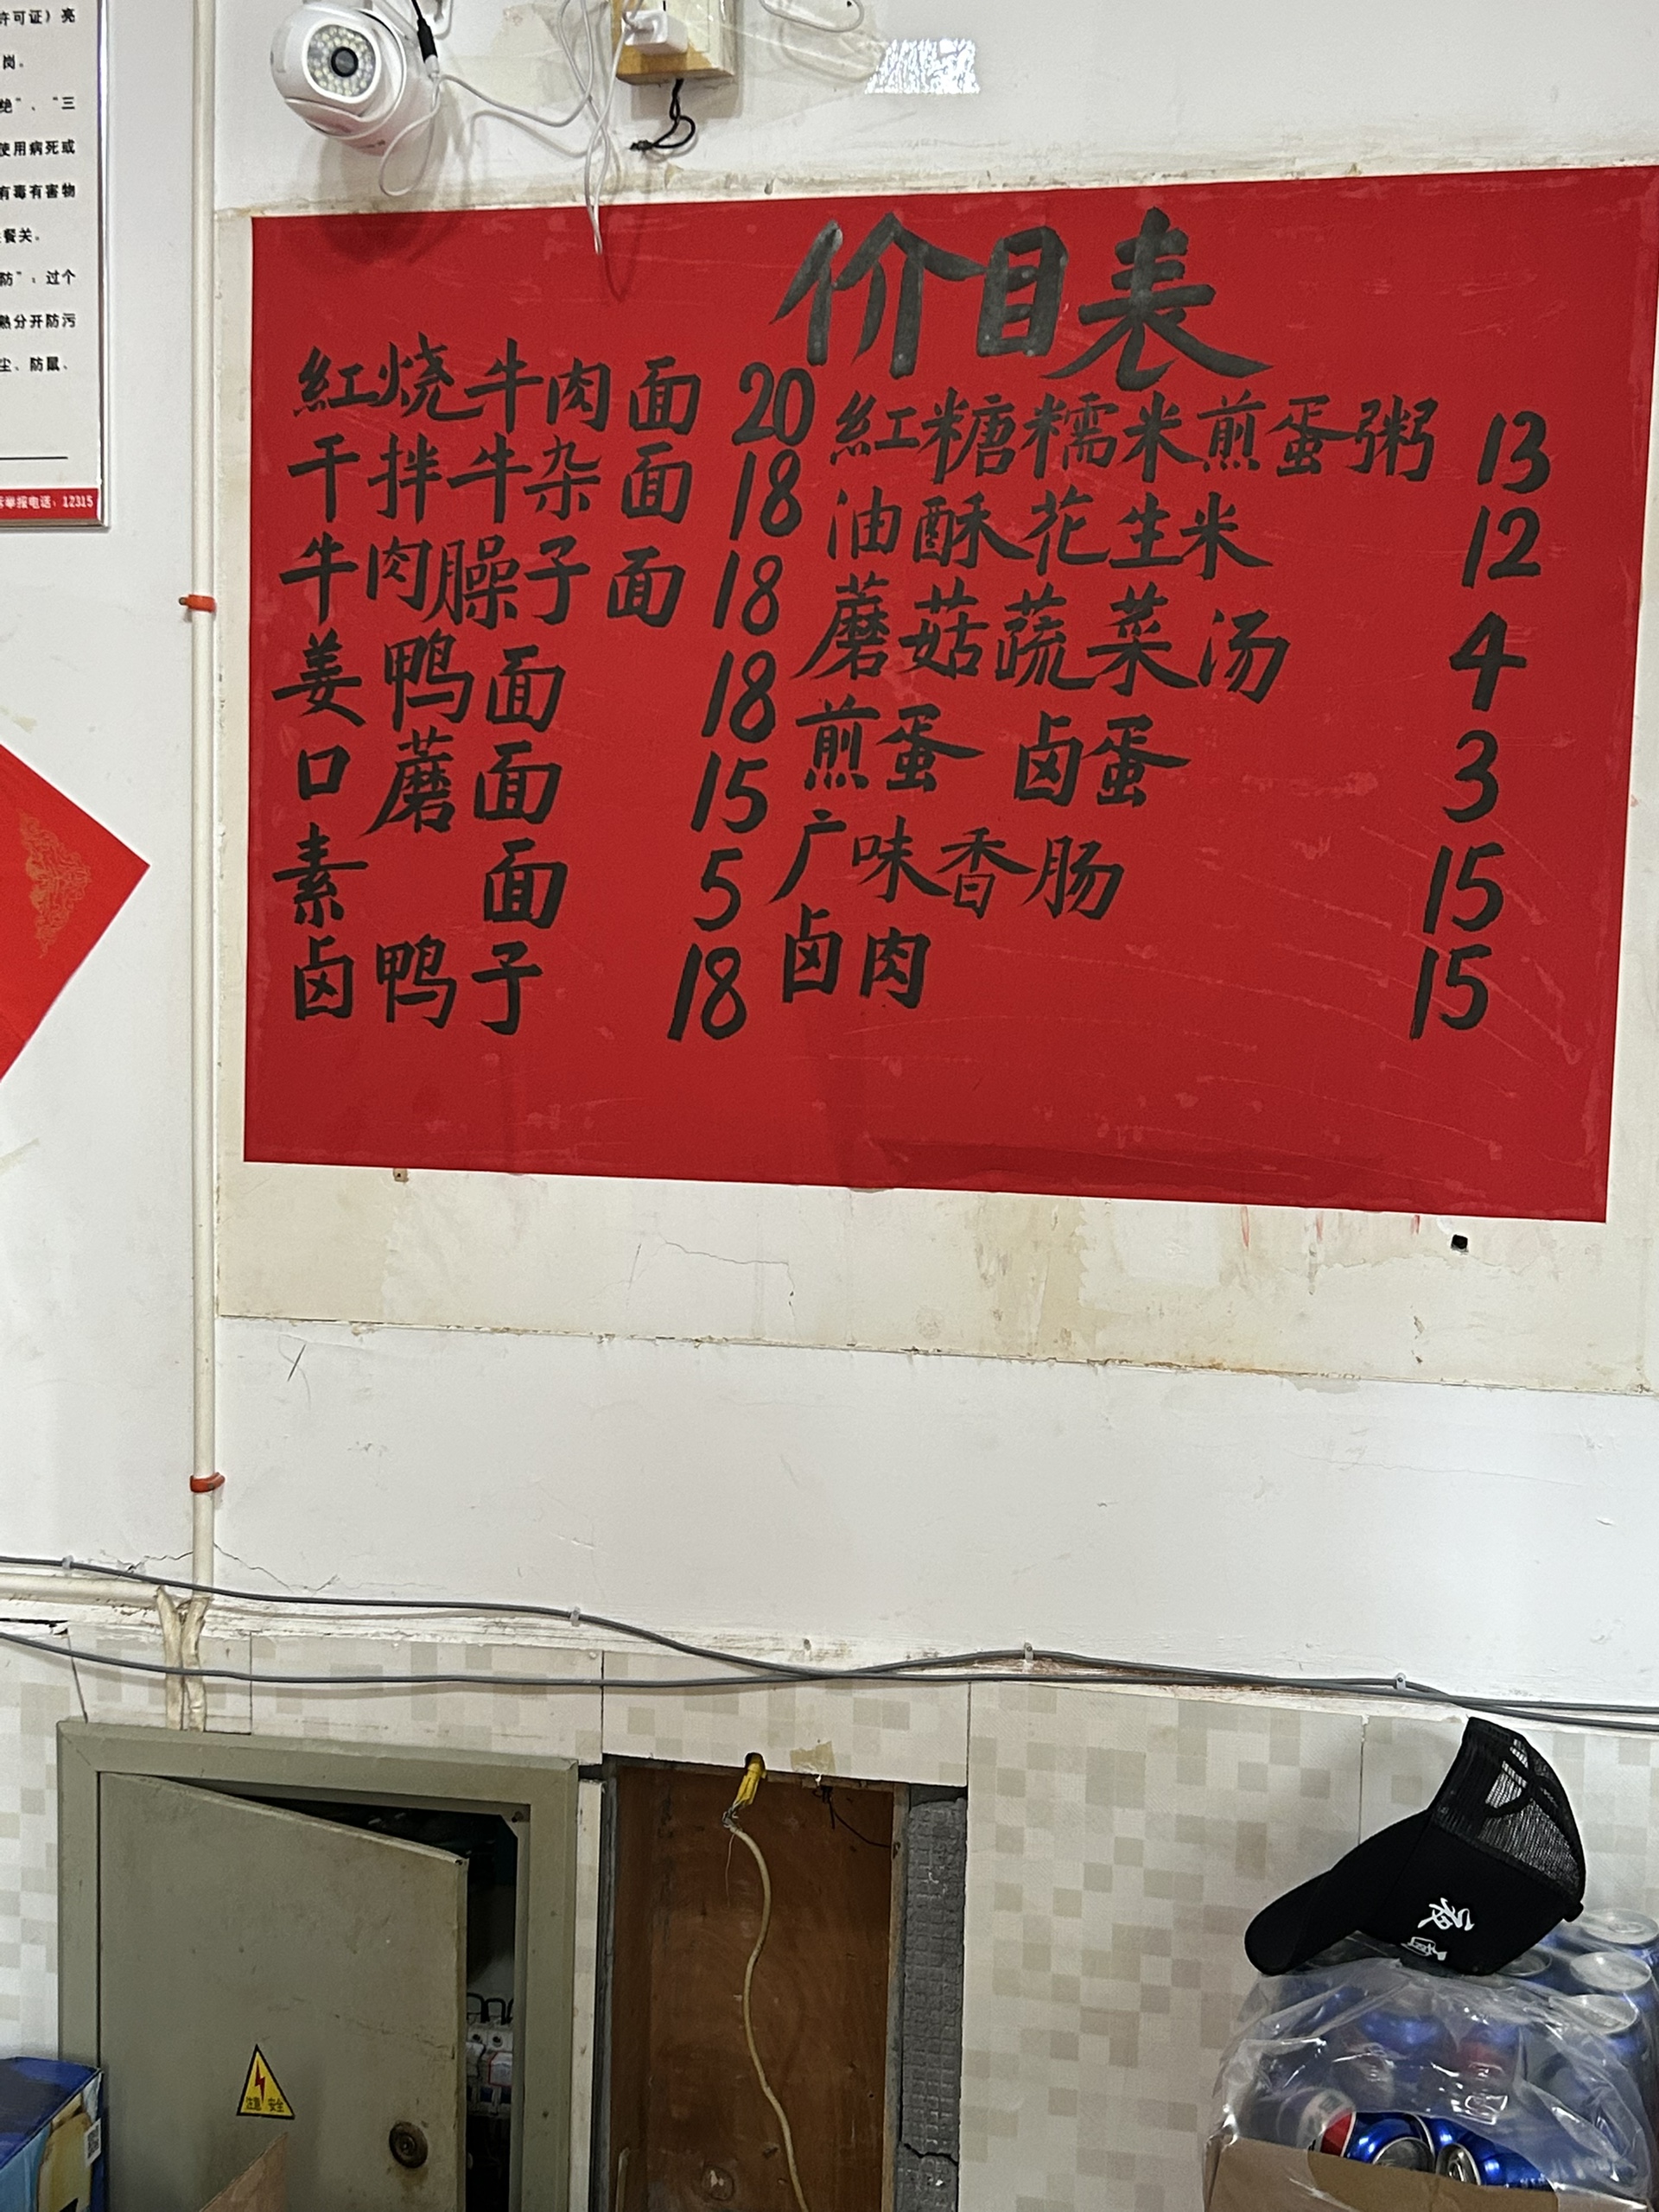 许可证）亮
岗。
绝”、“三
使用病死或
有毒有害物
餐关。
防”：过个
熟分开防污
尘、防鼠、
举报电话：12315
价目表
红烧牛肉面 20
干拌牛杂面 18
牛肉臊子面 18
姜鸭面 18
口蘑面 15
素面 5
卤鸭子 18
红糖糯米煎蛋粥 13
油酥花生米 12
蘑菇蔬菜汤 4
煎蛋 卤蛋 3
广味香肠 15
卤肉 15
注意 安全